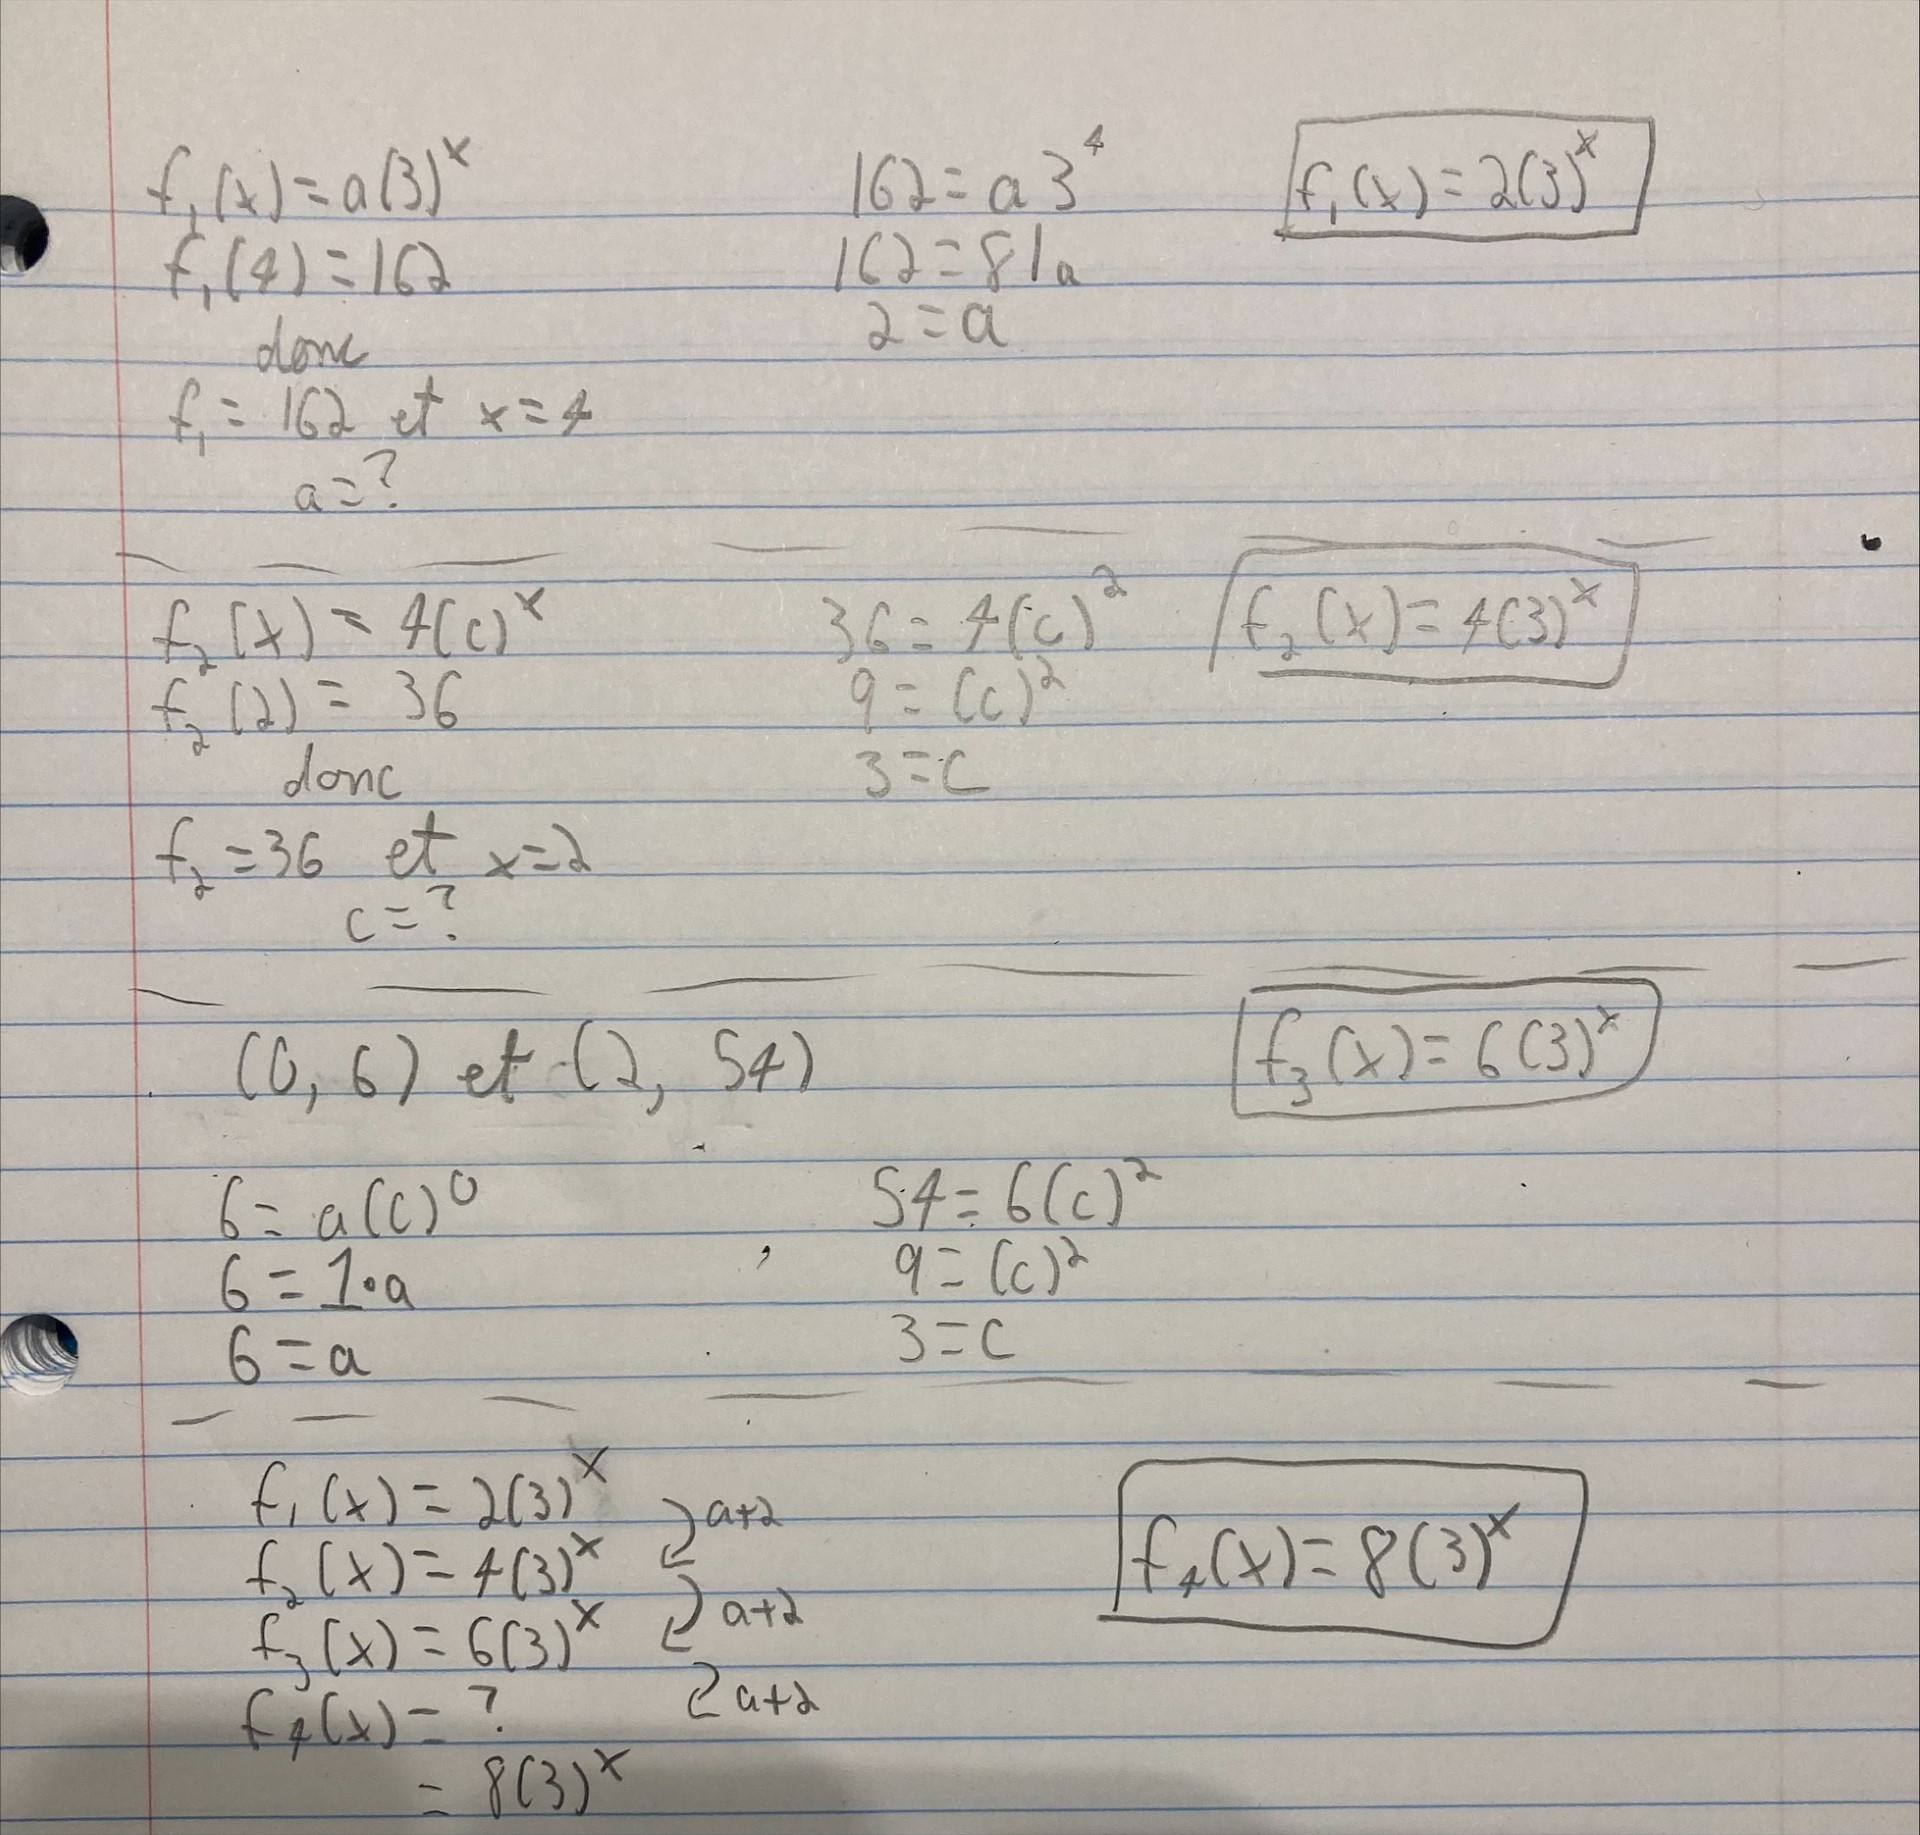 f₁(x) = a(3)ˣ
f₁(4) = 162
donc
f₁ = 162 et x = 4
a = ?
162 = a3⁴
162 = 81a
2 = a
f₁(x) = 2(3)ˣ
f₂(x) = 4(c)ˣ
f₂(2) = 36
donc
f₂ = 36 et x = 2
c = ?
36 = 4(c)²
9 = (c)²
3 = c
f₂(x) = 4(3)ˣ
(0, 6) et (2, 54)
f₃(x) = 6(3)ˣ
6 = a(c)⁰
6 = 1•a
6 = a
54 = 6(c)²
9 = (c)²
3 = c
f₁(x) = 2(3)ˣ
a+2
f₂(x) = 4(3)ˣ
a+2
f₃(x) = 6(3)ˣ
a+2
f₄(x) = ?
= 8(3)ˣ
f₄(x) = 8(3)ˣ